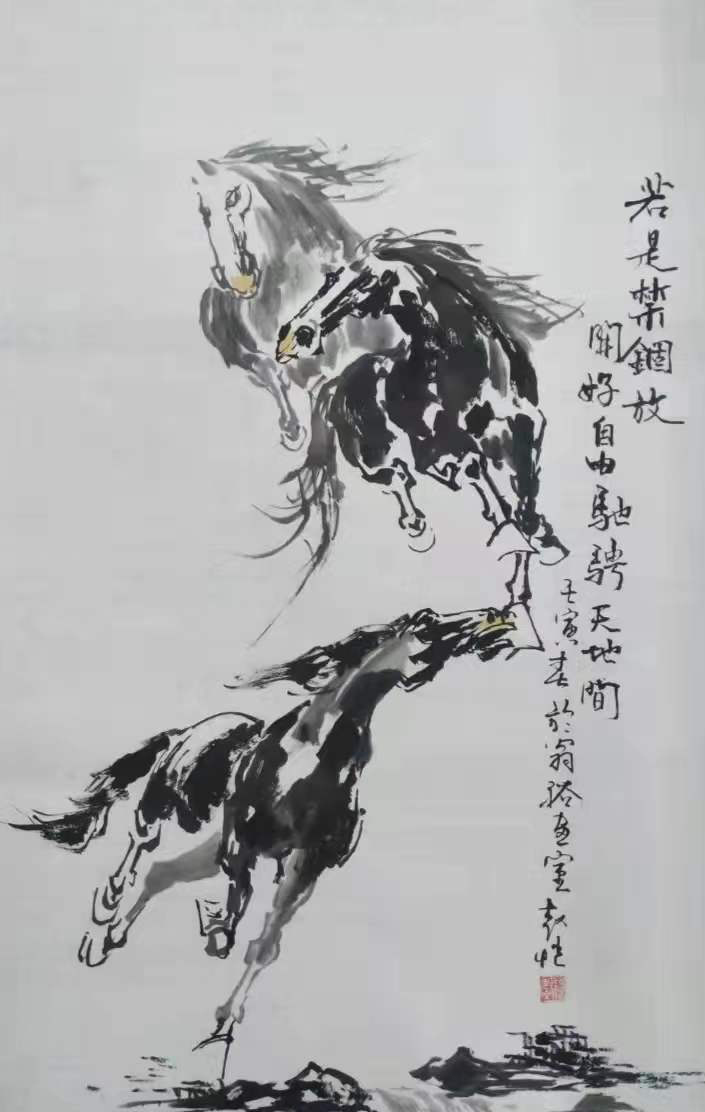 若是禁錮放
開好自由馳騁天地間
壬寅春於翁
畫室